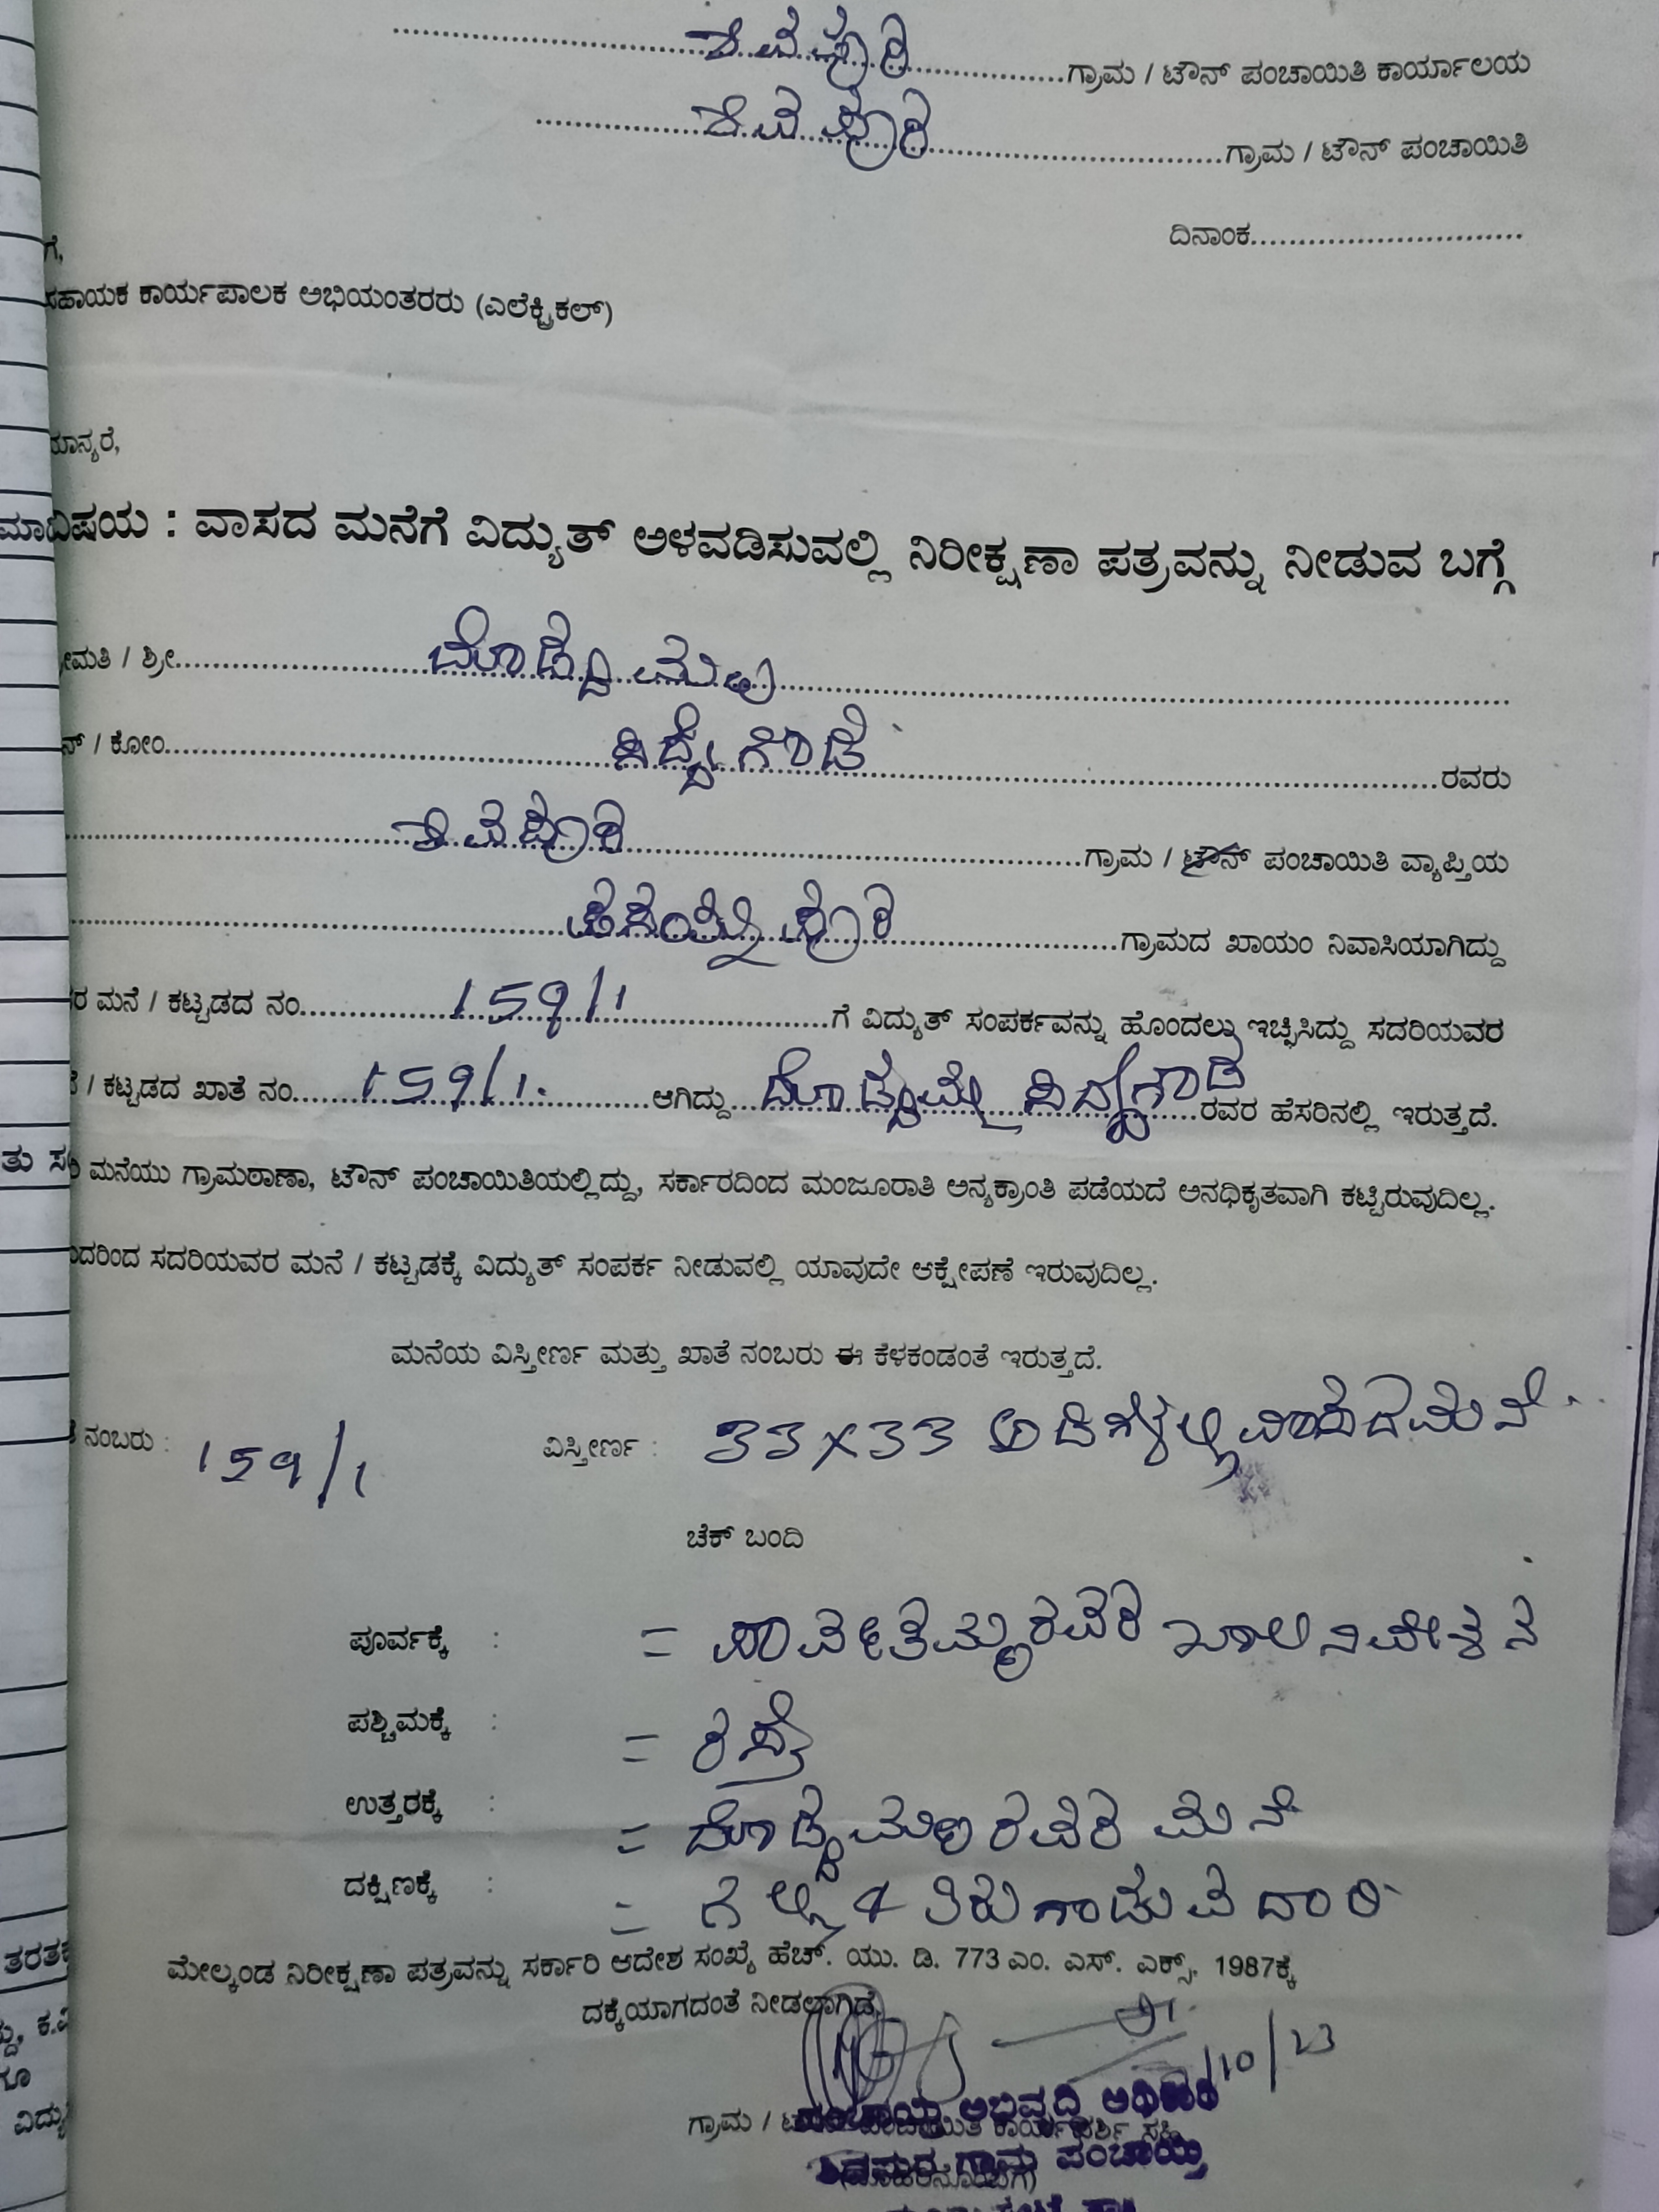 ಶಿವಪುರ ಗ್ರಾಮ / ಟೌನ್ ಪಂಚಾಯಿತಿ ಕಾರ್ಯಾಲಯ
ಶಿವಪುರ ಗ್ರಾಮ / ಟೌನ್ ಪಂಚಾಯಿತಿ
ದಿನಾಂಕ
ಗೆ,
ಸಹಾಯಕ ಕಾರ್ಯಪಾಲಕ ಅಭಿಯಂತರರು (ಎಲೆಕ್ಟ್ರಿಕಲ್)
ಮಾನ್ಯರೆ,
ವಿಷಯ : ವಾಸದ ಮನೆಗೆ ವಿದ್ಯುತ್ ಅಳವಡಿಸುವಲ್ಲಿ ನಿರೀಕ್ಷಣಾ ಪತ್ರವನ್ನು ನೀಡುವ ಬಗ್ಗೆ
ಮತಿ / ಶ್ರೀ
ನ್ / ಕೋಂ ಸಿದ್ದೇಗೌಡ ರವರು
ಶಿವಪುರ ಗ್ರಾಮ / ಟೌನ್ ಪಂಚಾಯಿತಿ ವ್ಯಾಪ್ತಿಯ
ಗ್ರಾಮದ ಖಾಯಂ ನಿವಾಸಿಯಾಗಿದ್ದು
ರ ಮನೆ / ಕಟ್ಟಡದ ನಂ 159/1 ಗೆ ವಿದ್ಯುತ್ ಸಂಪರ್ಕವನ್ನು ಹೊಂದಲು ಇಚ್ಛಿಸಿದ್ದು ಸದರಿಯವರ
/ ಕಟ್ಟಡದ ಖಾತೆ ನಂ 159/1. ಆಗಿದ್ದು ದೊಡ್ಡಮ್ಮ ಸಿದ್ದೇಗೌಡ ರವರ ಹೆಸರಿನಲ್ಲಿ ಇರುತ್ತದೆ.
ಮನೆಯು ಗ್ರಾಮಠಾಣಾ, ಟೌನ್ ಪಂಚಾಯಿತಿಯಲ್ಲಿದ್ದು, ಸರ್ಕಾರದಿಂದ ಮಂಜೂರಾತಿ ಅನ್ಯಕ್ರಾಂತಿ ಪಡೆಯದೆ ಅನಧಿಕೃತವಾಗಿ ಕಟ್ಟಿರುವುದಿಲ್ಲ.
ದರಿಂದ ಸದರಿಯವರ ಮನೆ / ಕಟ್ಟಡಕ್ಕೆ ವಿದ್ಯುತ್ ಸಂಪರ್ಕ ನೀಡುವಲ್ಲಿ ಯಾವುದೇ ಆಕ್ಷೇಪಣೆ ಇರುವುದಿಲ್ಲ.
ಮನೆಯ ವಿಸ್ತೀರ್ಣ ಮತ್ತು ಖಾತೆ ನಂಬರು ಈ ಕೆಳಕಂಡಂತೆ ಇರುತ್ತದೆ.
ನಂಬರು : 159/1 ವಿಸ್ತೀರ್ಣ : 33x33 ಅಡಿಗಳುಳ್ಳ ವಾಸದಮನೆ
ಚೆಕ್ ಬಂದಿ
ಪೂರ್ವಕ್ಕೆ : = ಪಾರ್ವತಮ್ಮರವರ ಖಾಲಿ ನಿವೇಶನ
ಪಶ್ಚಿಮಕ್ಕೆ : = ರಸ್ತೆ
ಉತ್ತರಕ್ಕೆ : = ರವರ ಮನೆ
ದಕ್ಷಿಣಕ್ಕೆ : = ಗಲ್ಲಿ & ತಿರುಗಾಡುವ ದಾರಿ
ಮೇಲ್ಕಂಡ ನಿರೀಕ್ಷಣಾ ಪತ್ರವನ್ನು ಸರ್ಕಾರಿ ಆದೇಶ ಸಂಖ್ಯೆ ಹೆಚ್. ಯು. ಡಿ. 773 ಎಂ. ಎಸ್. ಎಕ್ಸ್. 1987ಕ್ಕೆ
ದಕ್ಕೆಯಾಗದಂತೆ ನೀಡಲಾಗಿದೆ.
/10/23
ಪಂಚಾಯ್ತಿ ಅಭಿವೃದ್ಧಿ ಅಧಿಕಾರಿ
ಗ್ರಾಮ / ಟೌನ್ ಪಂಚಾಯಿತಿ ಕಾರ್ಯದರ್ಶಿ ಸಹಿ
ಗ್ರಾಮ ಪಂಚಾಯ್ತಿ
(ಮೊಹರಿನೊಂದಿಗೆ)